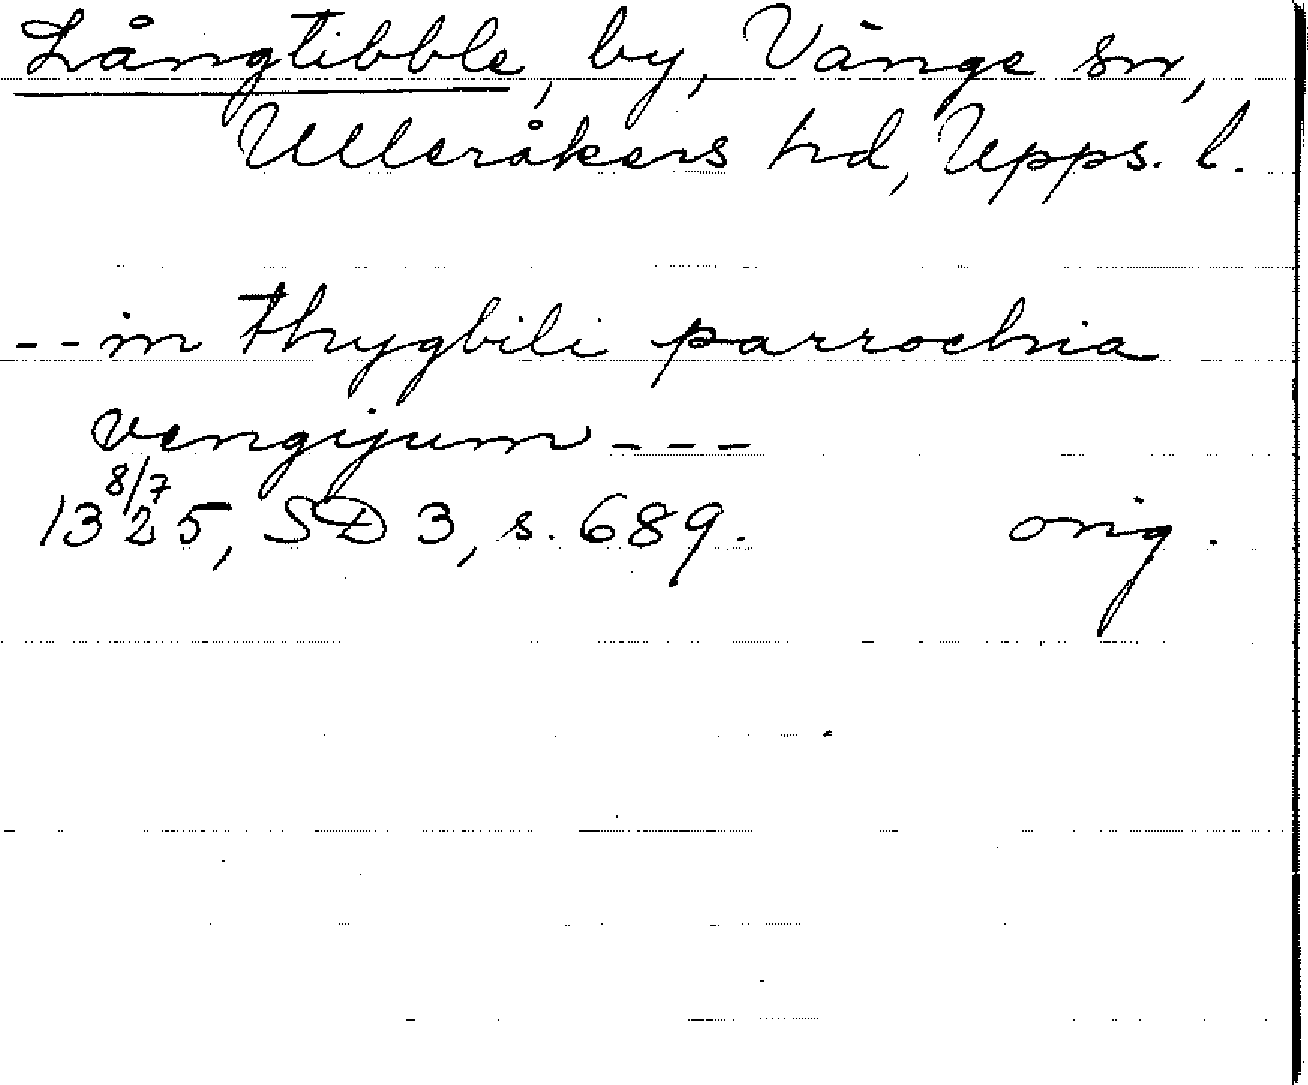 Långtibble, by, Vänge sn,
Ulleråkers hd, Upps. l.
--in thygbili parrochia
vengijum---
8/7
1325, SD 3, s. 689. orig.